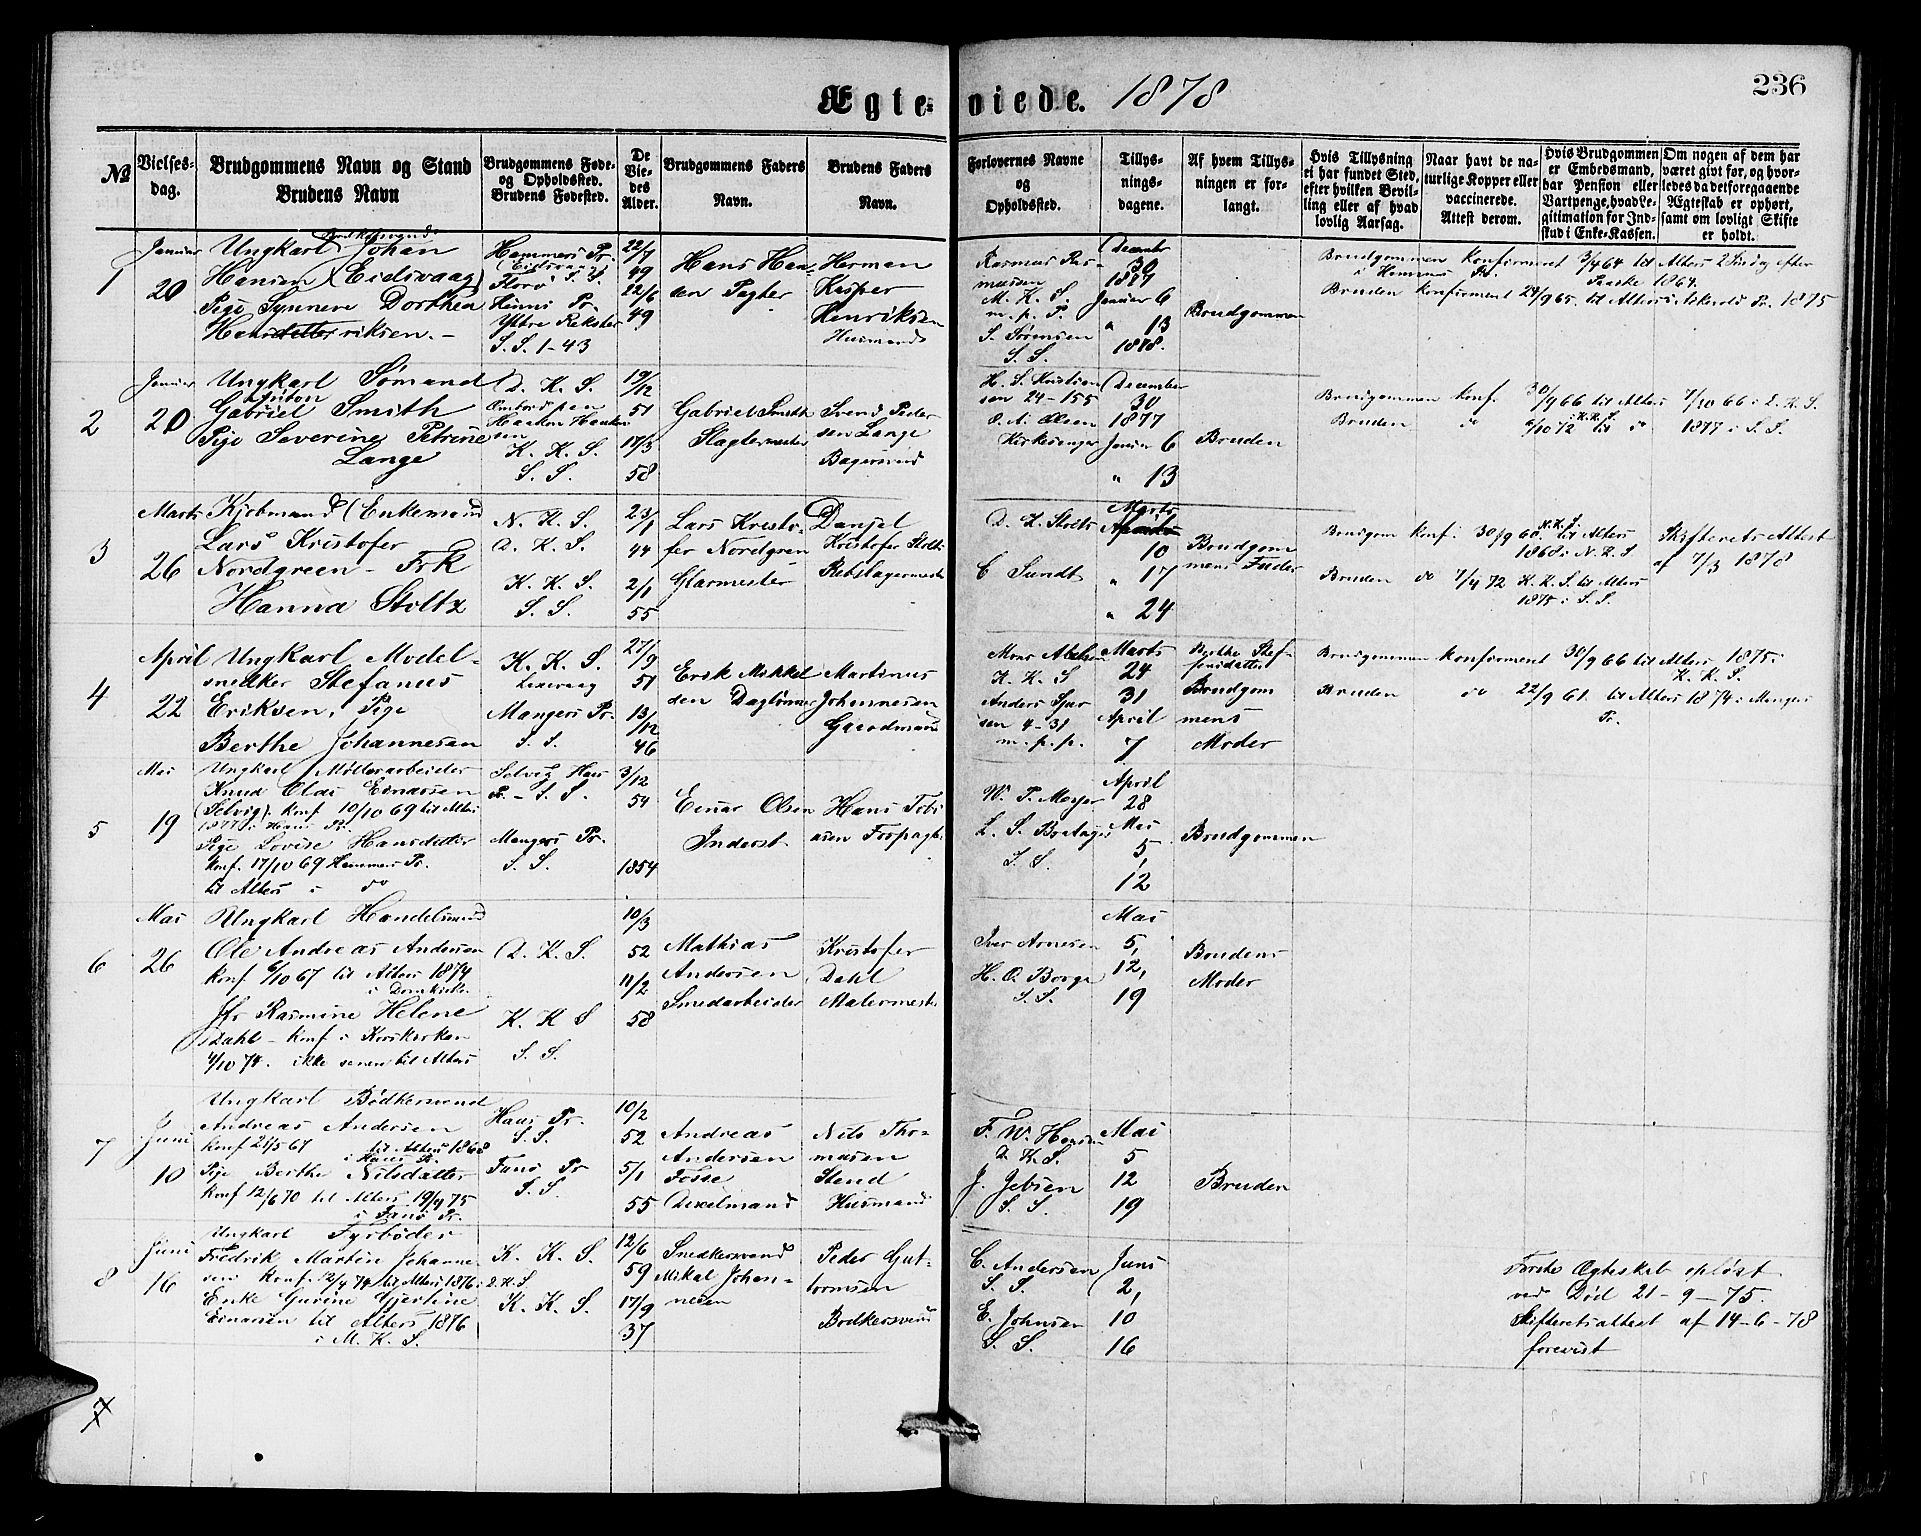 Ægteviede. 1878
236
№
Vielsesdag.
Brudgommens Navn og Stand
Brudens Navn
Brudgommens Føde- og Opholdssted.
Brudens Fødested.
De Viedes Alder.
Brudgommens Faders Navn.
Brudens Faders Navn.
Forlovernes Navne og Opholdssted.
Tillysningsdagene.
Af hvem Tillysningen er forlangt.
Hvis Tillysning ei har fundet Sted, efter hvilken Bevilling eller af hvad lovlig Aarsag.
Naar havt de naturlige Kopper eller vaccinerede. Attest derom.
Hvis Brudgommen er Embedsmand, har Pension eller Vartpenge, hvad Legitimation for Indskud i Enke-Kassen.
Om nogen af dem har været givt før, og hvorledes da det foregaaende Ægteskab er ophørt, samt om lovligt Skifte er holdt.
1
Januar
20
Ungkarl Johan
Hansen (Eidsvaag)
Pige Synneve Dorthea
Henriksen. -
Hammers Pr.
(Eidsvaag)
Florø S. S.
Kinns Pr.
Yttre Rekster
S. S. 1-43
22/7
49
22/6
49
Hans Hansen Pagter
Herman
Kasper
Henriksen
Husmand
Rasmus Rasmusen
M. K. S.
m. p. P.
S. Sørensen
S. S.
December
30
1877
Januar 6
" 13
1878.
Brudgommen
Brudgommen Konfirmeret 3/4 64 til Alters 2 Søndag efter
Paaske 1864.
Bruden konfirmeret 24/9 65. til Alters i Pr. 1875
2
Januar
20
Ungkarl Sømand
Anton
Gabriel Smith
Pige Severine Petrine
Lange
D. K. S.
Ombord paa
Haakon Haakonsen
K. K. S.
S. S.
19/12
51
17/3
58
Gabriel Smith
Slagtermester
Svend Pedersen Lange
Bagersvend
H. S. Kristiansen 24-155
O. A. Olsen
Kirkesanger
December
30
1877
Januar 6
" 13
Bruden
Brudgommen Konf. 30/9 66 til Alters 7/10 66 i D. K. S.
Bruden do 6/10 72 i K. K. S. til do 1877 i S. S.
3
Marts
26
Kjøbmand (Enkemand
Lars Kristofer
Nordgreen - Frk
Hanna Stoltz
N. K. S.
D. K. S.
K. K. S.
S. S.
23/1
44
2/1
55
Lars Kristofer Nordgren
Glarmester
Danjel
Kristofer Stoltz
Rebslagermester
D. K. Stoltz
C Sundt
Marts
10
" 17
" 24
Brudgommens Fader
Brudgom Konf. 30/9 60. N. K. S. til Alters
1868 i N. K. S
Skifterets Attest
af 7/3 1878
Bruden do 7/4 72 K. K. S. til Alters
1875 i S. S.
4
April
22
Ungkarl Modelsnedker Stefanus
Eriksen, Pige
Berthe Johannesen
K. K. S.
Laxevaag
Mangers Pr.
S. S.
27/9
51
13/12
46
Erik Mikkelsen Daglønner
Martinus
Johannesen
Gaardmand
Mons
K. K. S
Anders Sjursen 4-31
m. p. p.
Marts
24
31
April
7
Berthe Stefensdatter
Brudgommens
Moder
Brudgommen Konfirmeret 30/9 66 til Alters 1875.
K. K. S.
Bruden do 22/9 61. til Alters 1874 i Mangers
Pr.
5
Mai
19
Ungkarl Møllerarbeider
Knud Olai Einarsen
(Selvig). Konf 10/10 69 til Alters
1877 i Haus Pr.
Pige Lovise Hansdatter
Konf. 17/10 69 Hammers Pr.
til Alters i do
Selvig Haus
Pr. - S. S.
Mangers Pr.
S. S.
3/12
54
1854
Einar Olsen
Inderst
Hans Tobiasen
W. P. Meyer
L. S. Bratager
S. S.
April
28
Mai
5,
12
Brudgommen
6
Mai
26
Ungkarl Handelsmand
Ole Andreas Andersen
Konf 6/10 67 til Alters 1874
i Domkirken
Jfr Rasmine Helene
Dahl - Konf i Korskirken
4/10 74. ikke senere til Alters
D. K. S.
K. K S
S. S.
10/3
52
11/2
58
Mathias
Andersen
Smedarbeider
Kristofer
Dahl
Malermester
Iver Arnesen
H. O. Borge
S. S.
Mai
5,
12,
19
Brudens
Moder
7
Juni
10
Ungkarl Bødkersvend
Andreas Andersen
Konf 21/5 67 til Alters 1868
i Haus Pr.
Pige Berthe Nilsdatter
Konf 12/6 70 til Alters 19/4 75
i Fanø Pr.
Haus Pr.
S. S.
Fanø Pr
S. S.
10/2
52
5/1
55
Andreas
Andersen
Fosse
Dexelmand
Nils Thomasen
Stend
Husmand
F. W. Hansen
D. K. S.
J. Jebsen
S. S.
Mai
5
12
19
Bruden
8
Juni
16
Ungkarl Fyrbøder
Fredrik Martin Johannesen Konf. 12/4 74 til Alters 1876 i
D. K. S
Enke Gurine Gjertine
Einarsen til Alters 1876
i M. K. S.
K. K. S.
K. K. S.
12/6
59
17/9
37
Snedkersvend
Mikal Johannesen
Peder Guttormsen
Bødkersvend
C. Andersen
S. S.
E. Johnsen
S. S.
Juni
2,
10
16
Første Ægteskab opløst
ved Død 21-9-75.
Skifteretsattest af 14-6-78
forevist
7